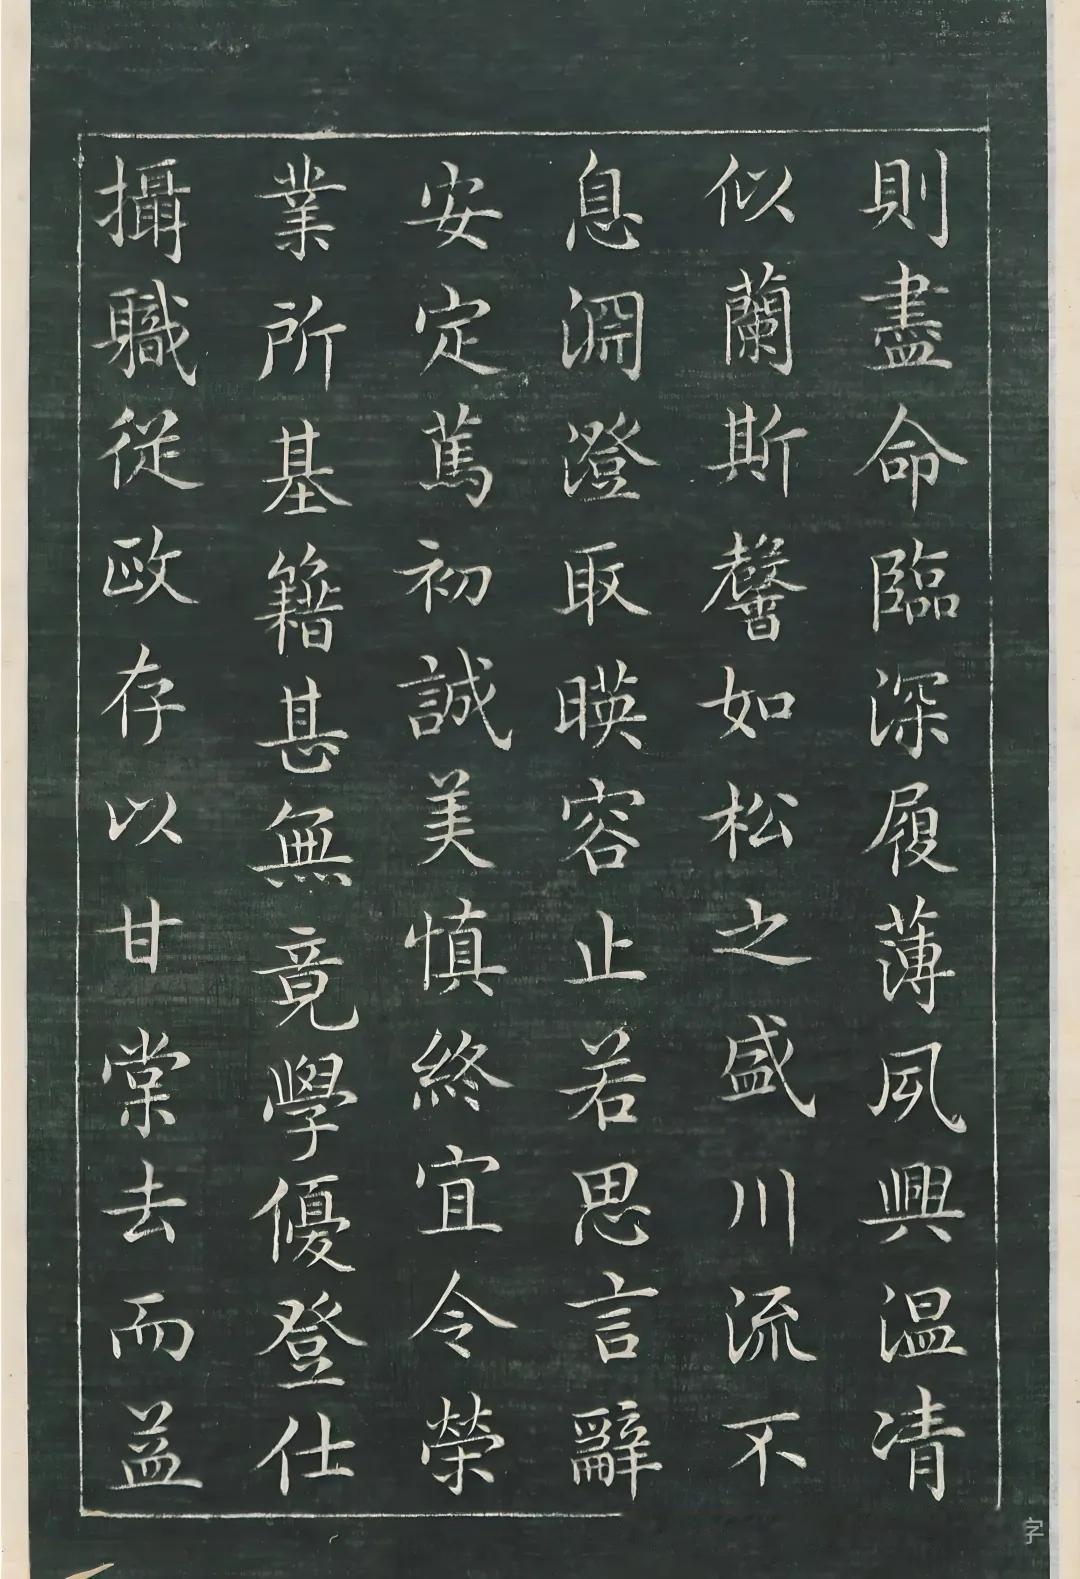 則盡命臨深履薄夙興温凊
似蘭斯馨如松之盛川流不
息淵澄取暎容止若思言辭
安定篤初誠美慎終宜令榮
業所基籍甚無竟學優登仕
攝職從政存以甘棠去而益
字